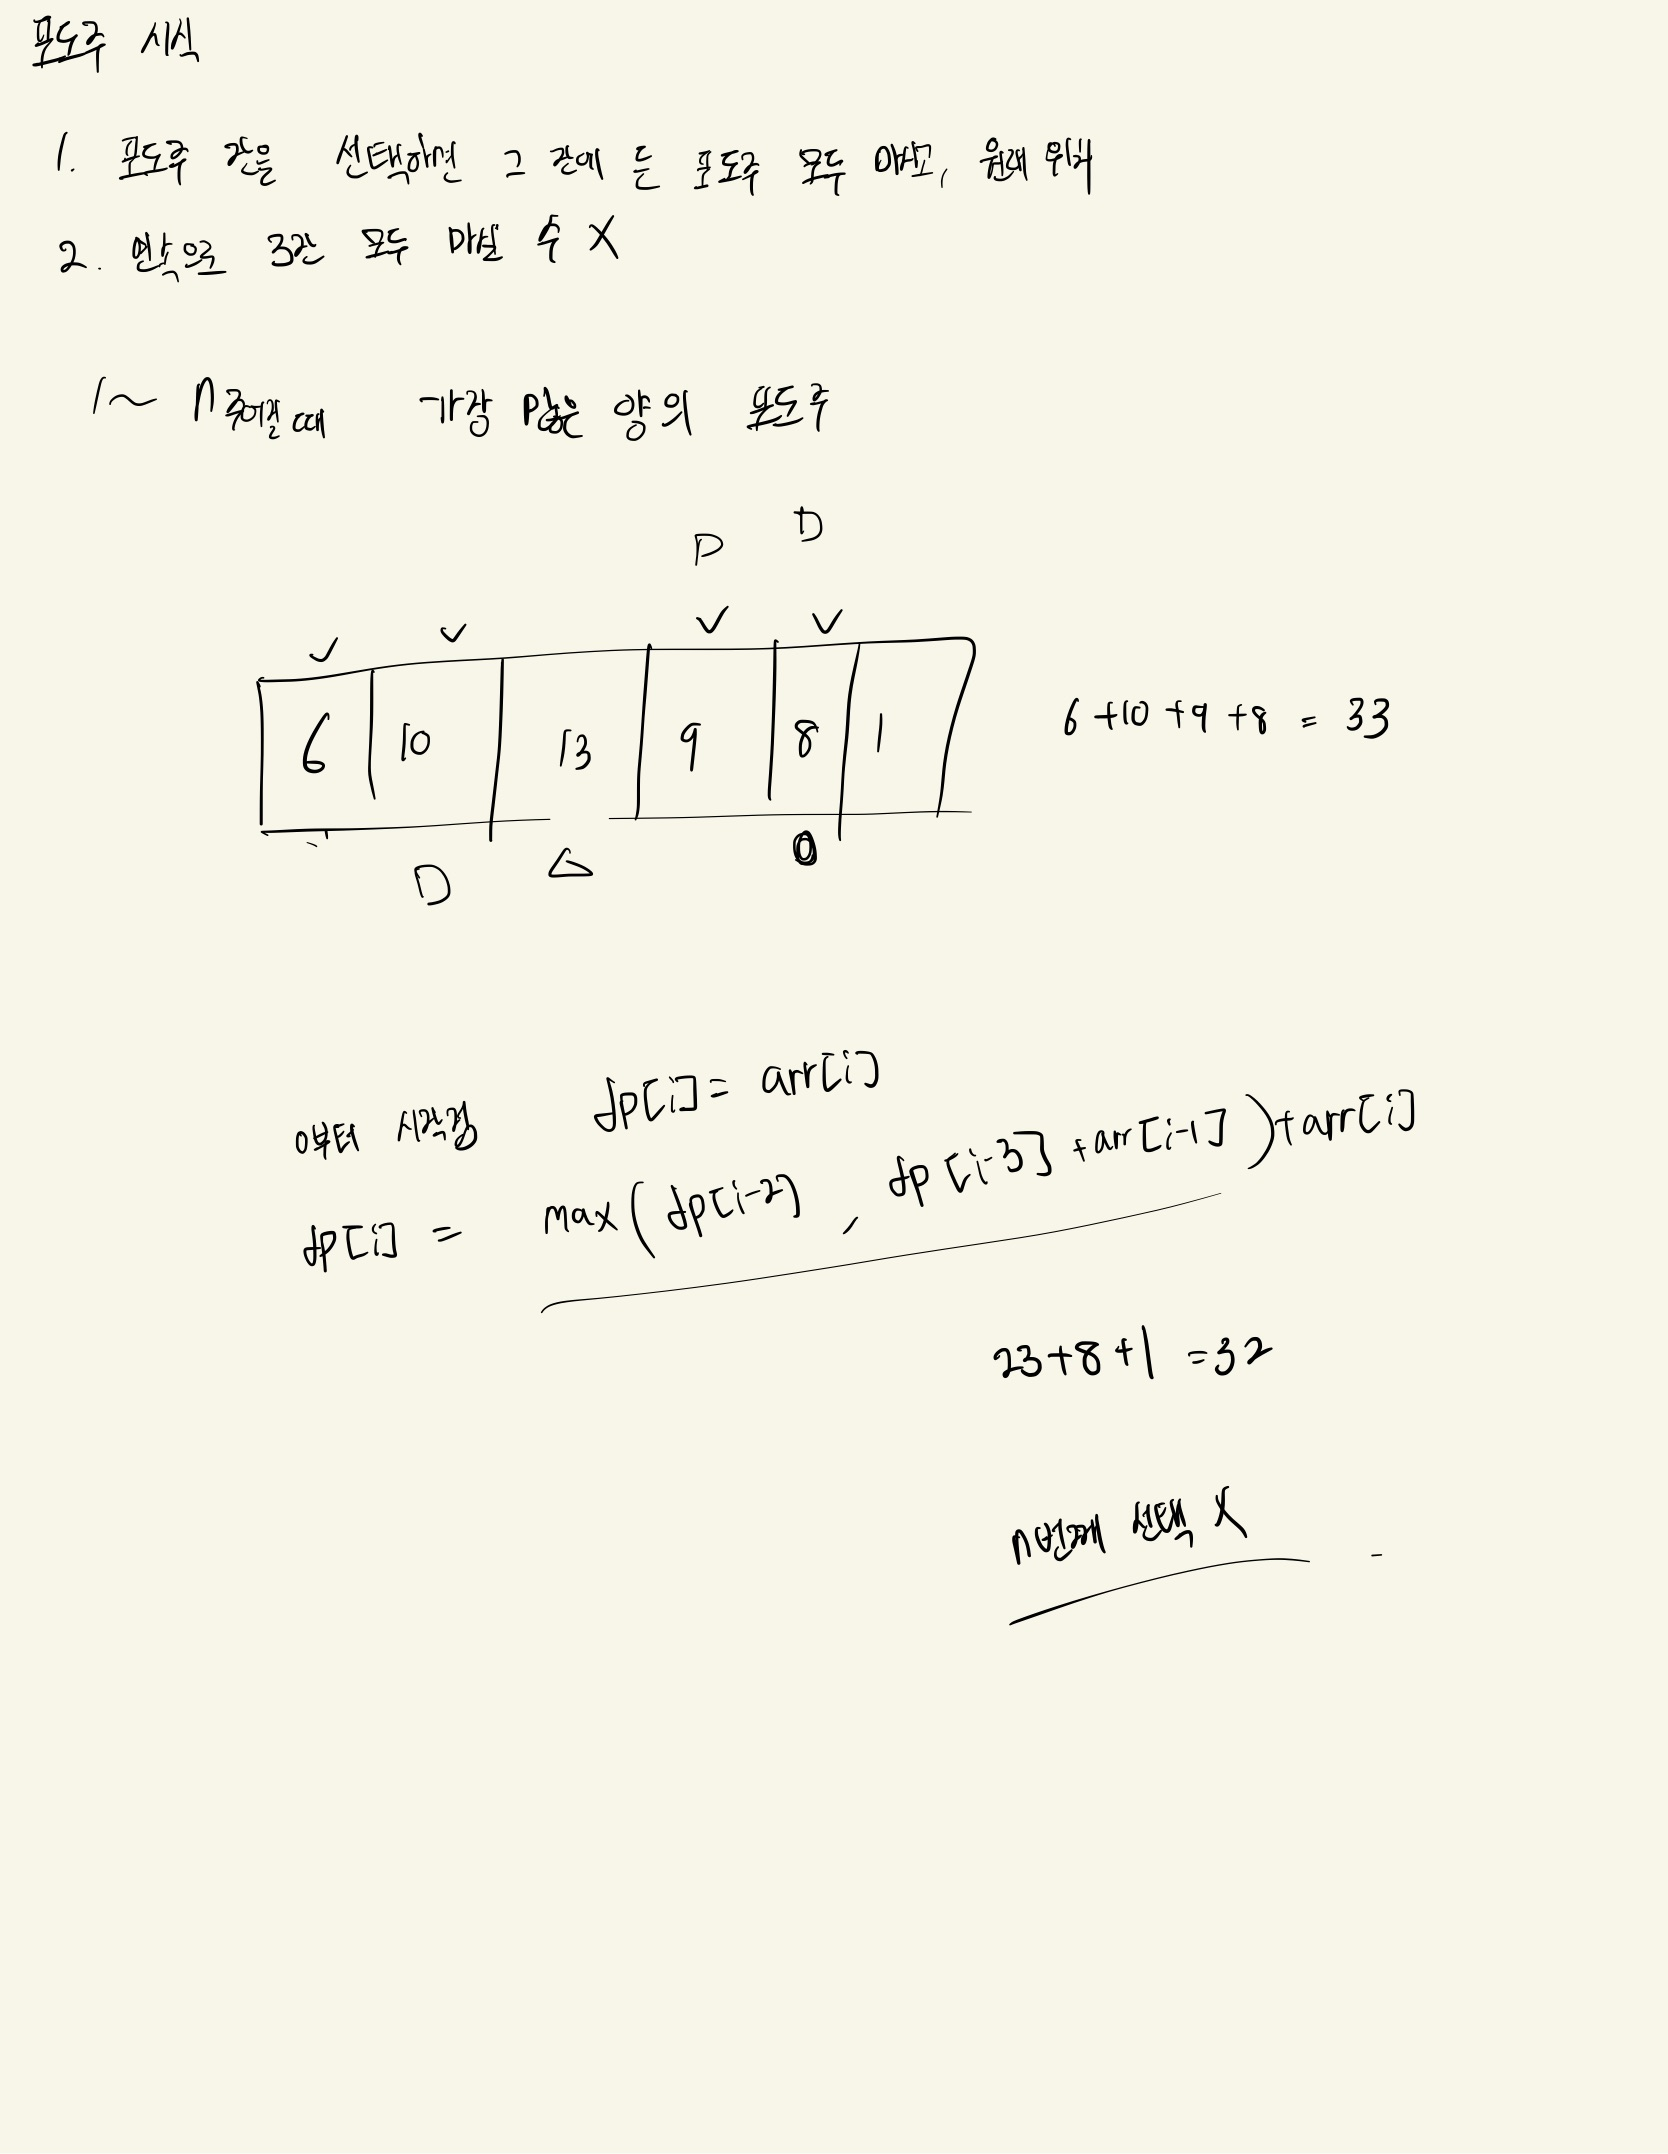 포도주 시식
1. 포도주 잔을 선택하면 그 잔에 든 포도주 모두 마시고, 원래 위치
2. 연속으로 3잔 모두 마실 수 X
1~ n 주어질 때 가장 많은 양의 포도주
D D
✓ ✓ ✓ ✓
6 10 13 9 8 1
6+10+9+8 = 33
D △ 0
0부터 시작점 dp[i] = arr[i]
dp[i] = max(dp[i-2], dp[i-3]+arr[i-1])+arr[i]
23+8+1 =32
n번째 선택 X